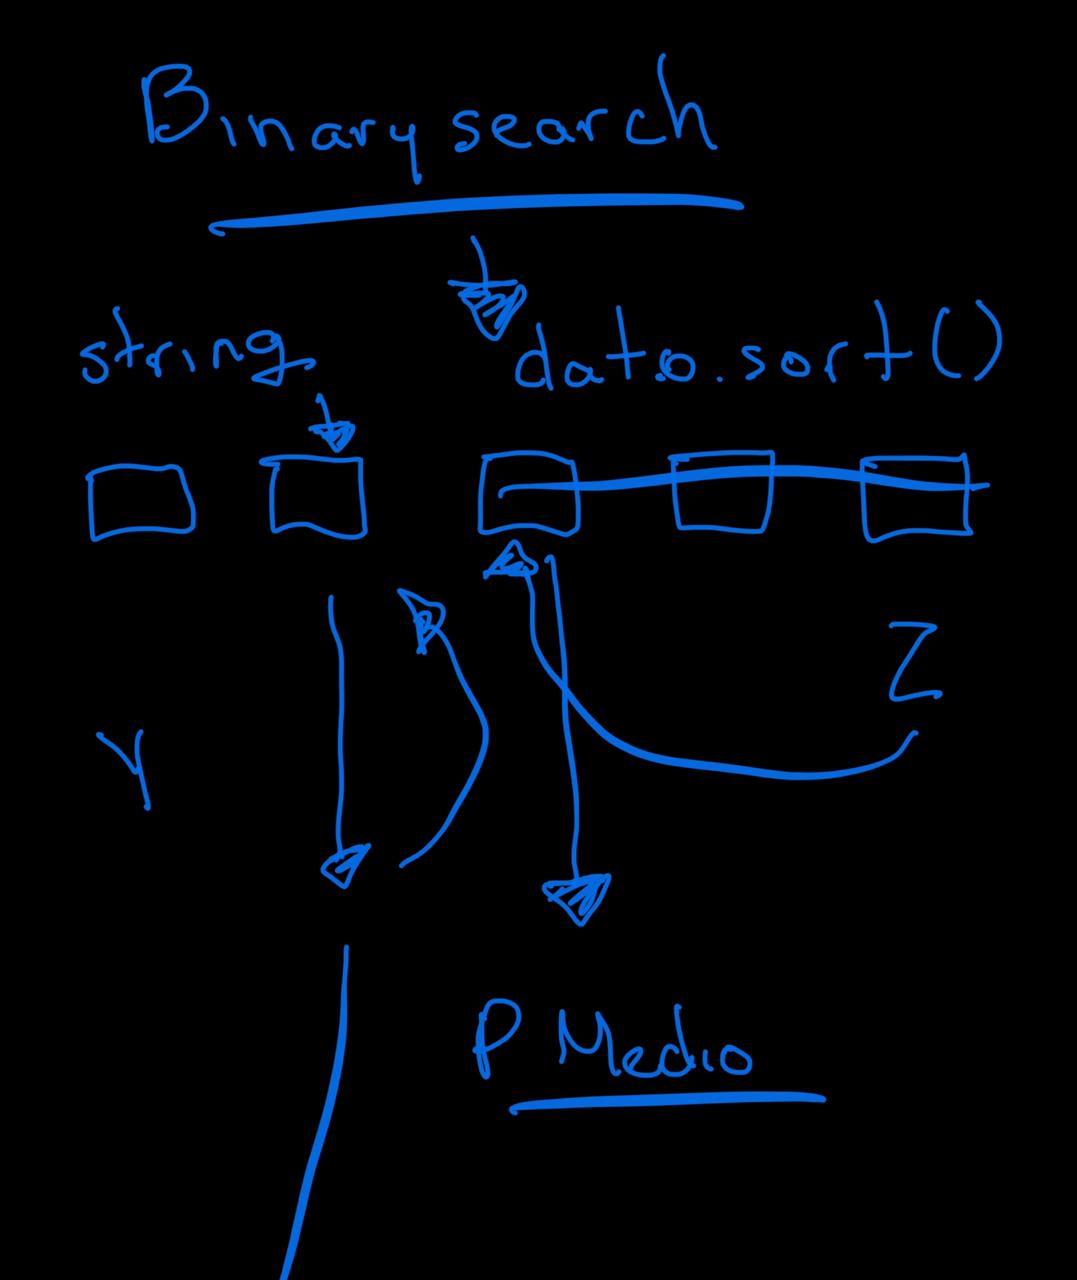 Binary search
string
dato.sort()
Z
Y
P Medio